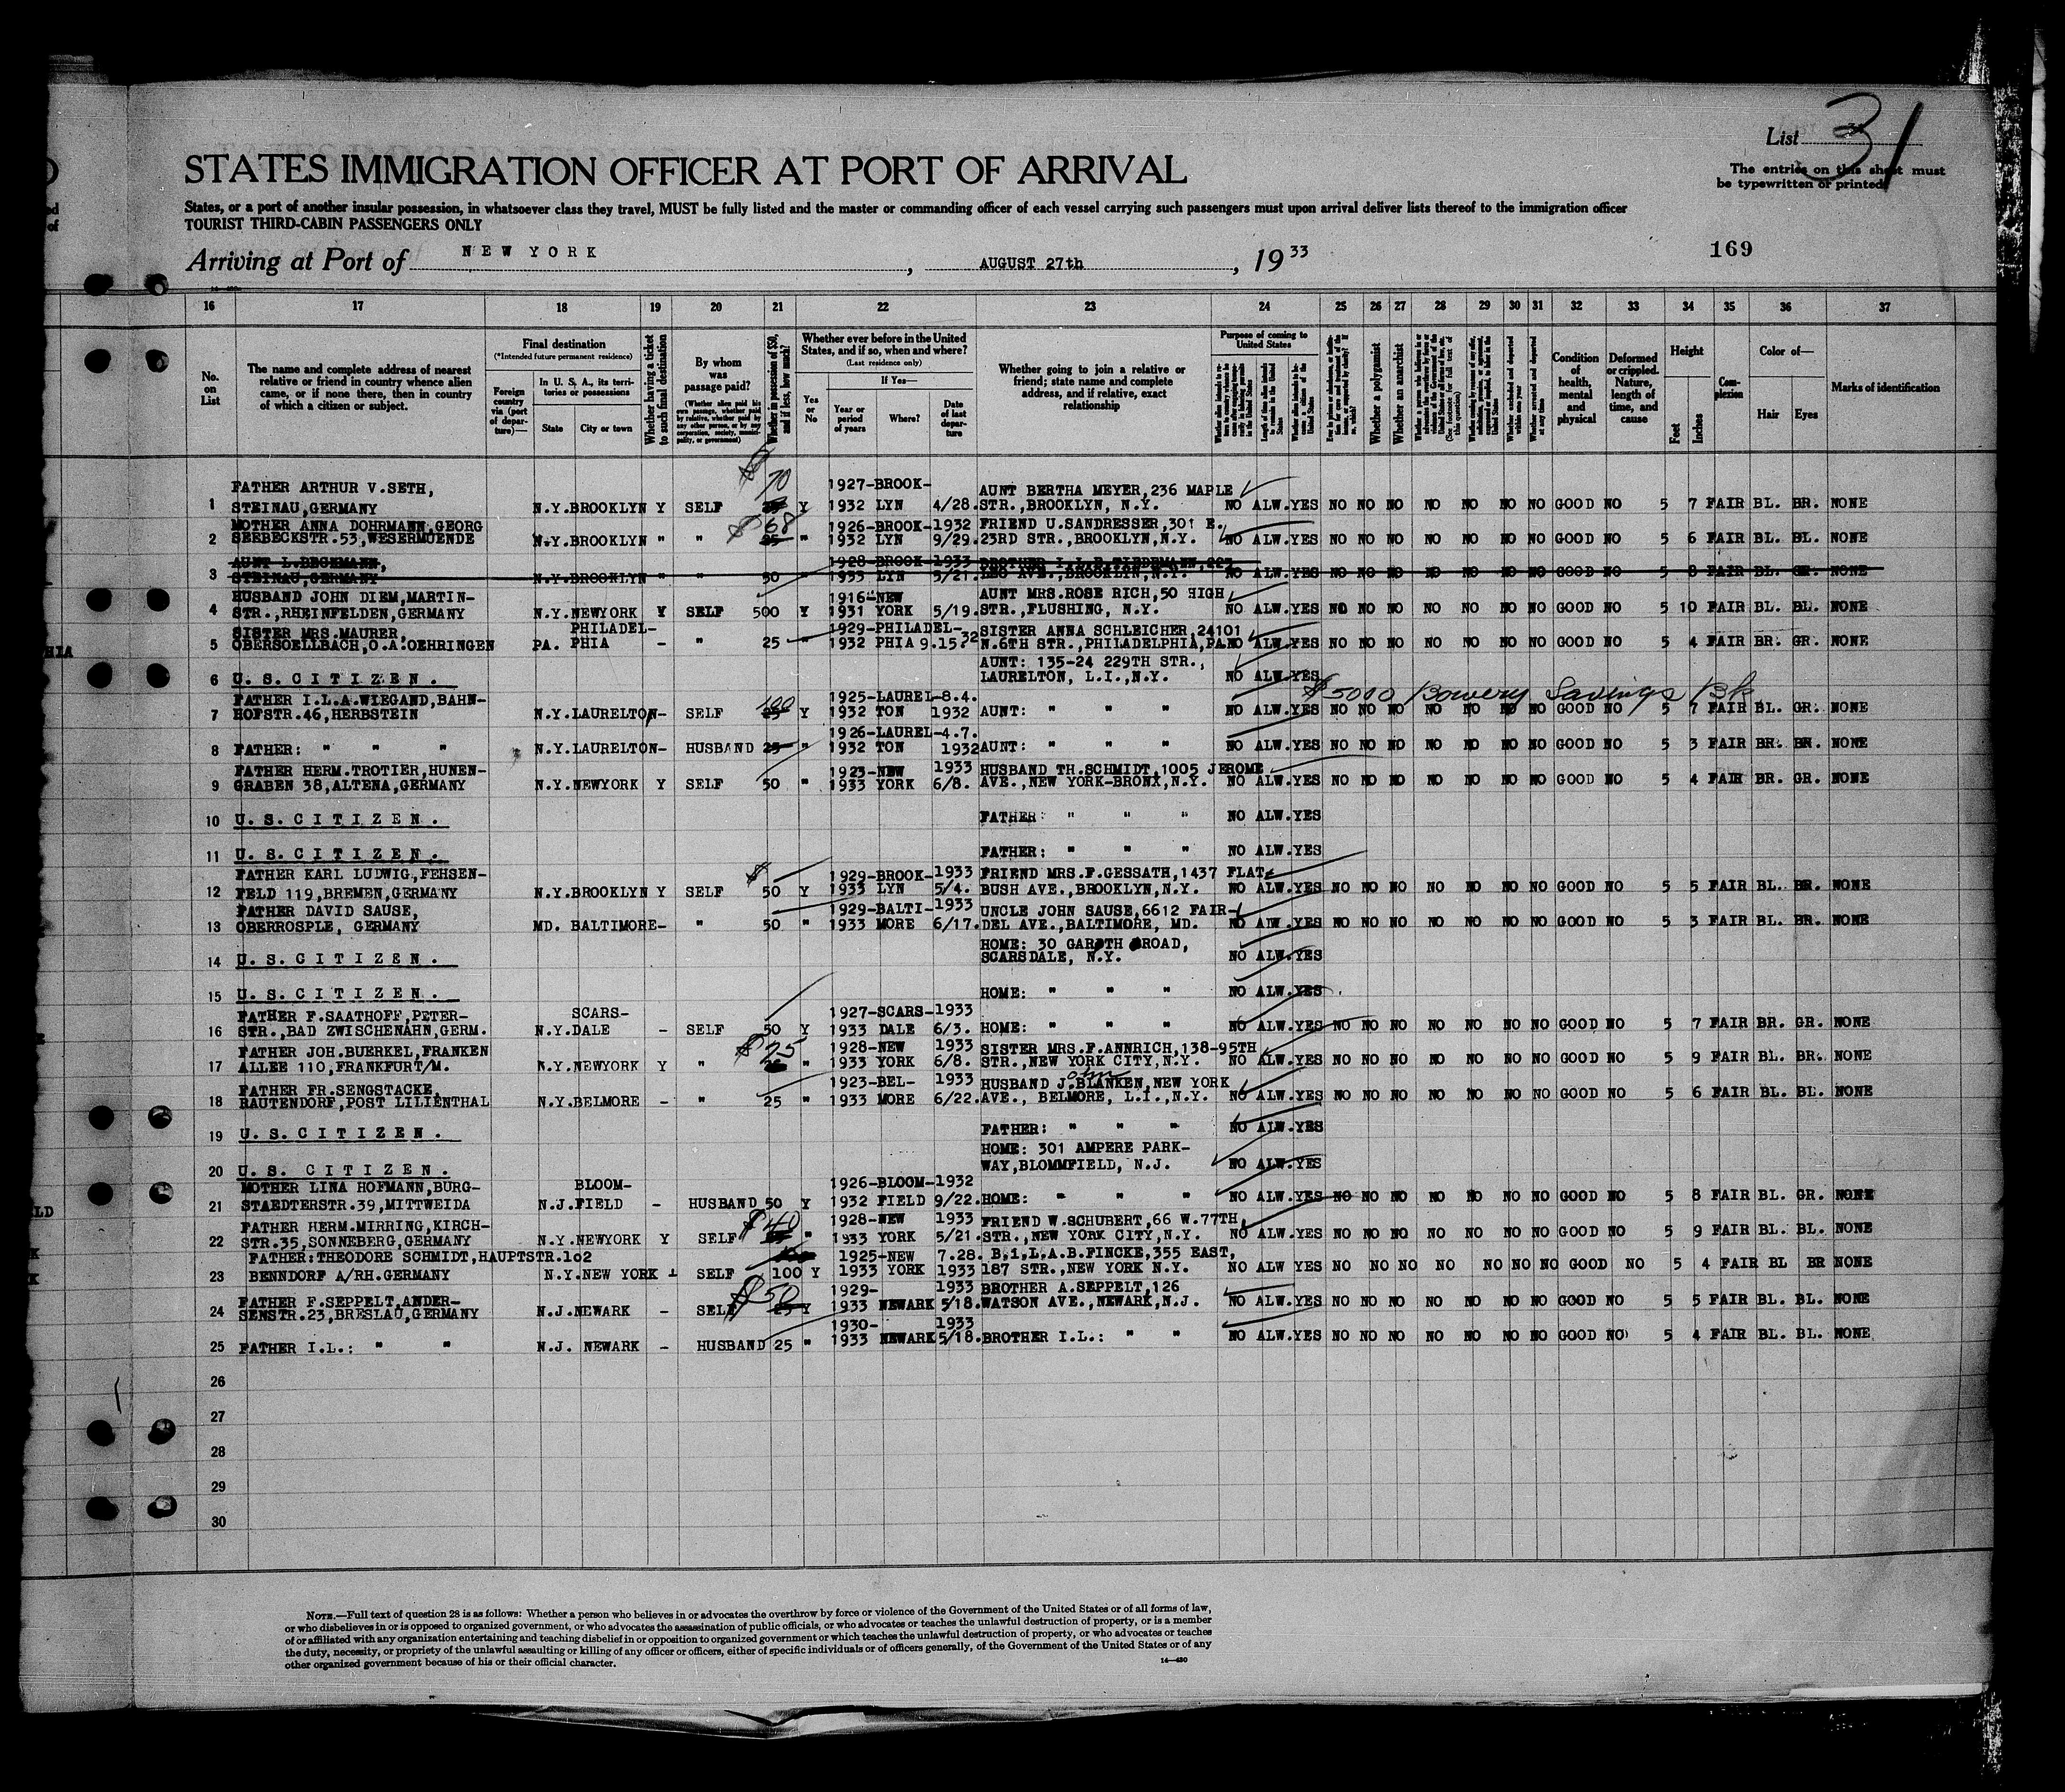 List 31
STATES IMMIGRATION OFFICER AT PORT OF ARRIVAL
The entries on this sheet must
be typewritten or printed
States, or a port of another insular possession, in whatsoever class they travel, MUST be fully listed and the master or commanding officer of each vessel carrying such passengers must upon arrival deliver lists thereof to the immigration officer
TOURIST THIRD-CABIN PASSENGERS ONLY
Arriving at Port of NEW YORK, AUGUST 27th, 19 33
169
16 17 18 19 20 21 22 23 24 25 26 27 28 29 30 31 32 33 34 35 36 37
No. on List
The name and complete address of nearest relative or friend in country whence alien came, or if none there, then in country of which a citizen or subject.
Final destination
(*Intended future permanent residence)
Foreign country via (port of departure)—
In U. S. A., its territories or possessions
State City or town
Whether having a ticket to such final destination
By whom was passage paid?
(Whether alien paid his own passage, whether paid by relative, whether paid by any other person, or by any corporation, society, municipality, or government)
Whether in possession of $50, and if less, how much?
Whether ever before in the United States, and if so, when and where?
(Last residence only)
Yes or No
If Yes—
Year or period of years
Where?
Date of last departure
Whether going to join a relative or friend; state name and complete address, and if relative, exact relationship
Purpose of coming to United States
Whether a polygamist
Whether an anarchist
Condition of health, mental and physical
Deformed or crippled. Nature, length of time, and cause
Height
Feet Inches
Complexion
Color of—
Hair Eyes
Marks of identification
FATHER ARTHUR V.SETH, 70 1927-BROOK- AUNT BERTHA MEYER,236 MAPLE
1 STEINAU,GERMANY N.Y.BROOKLYN Y SELF Y 1932 LYN 4/28. STR.,BROOKLYN, N.Y. NO ALW.YES NO NO NO NO NO NO NO GOOD NO 5 7 FAIR BL. BR. NONE
MOTHER ANNA DOHRMANN,GEORG $68 1926-BROOK-1932 FRIEND U.SANDRESSER,301 E.
2 SEEBECKSTR.53,WESERMUENDE N.Y.BROOKLYN " " 25 " 1932 LYN 9/29. 23RD STR.,BROOKLYN,N.Y. NO ALW.YES NO NO NO NO NO NO NO GOOD NO 5 6 FAIR BL. BL. NONE
AUNT L.BECKMANN, 1928-BROOK-1933 BROTHER I.L.E.TIEDEMANN,223
3 STEINAU,GERMANY N.Y.BROOKLYN " " 50 " 1933 LYN 5/21. AVE.,BROOKLYN,N.Y. NO ALW.YES NO NO NO NO NO NO NO GOOD NO 5 8 FAIR BL. GR. NONE
HUSBAND JOHN DIEM,MARTIN- 1916-NEW AUNT MRS.ROSE RICH,50 HIGH
4 STR.,RHEINFELDEN,GERMANY N.Y.NEWYORK Y SELF 500 Y 1931 YORK 5/19. STR.,FLUSHING, N.Y. NO ALW.YES NO NO NO NO NO NO NO GOOD NO 5 10 FAIR BL. BL. NONE
SISTER MRS.MAURER, PHILADEL- 1929-PHILADEL- SISTER ANNA SCHLEICHER,24101
5 OBERSOELLBACH,O.A.OEHRINGEN PA. PHIA - " 25 " 1932 PHIA 9.15.32 N.6TH STR.,PHILADELPHIA,PA. NO ALW.YES NO NO NO NO NO NO NO GOOD NO 5 4 FAIR BR. GR. NONE
AUNT: 135-24 229TH STR.,
6 U.S.CITIZEN. LAURELTON, L.I.,N.Y. NO ALW.YES
$5000 Bowery Savings Bk
FATHER I.L.A.WIEGAND,BAHN- 100 1925-LAUREL-8.4.
7 HOFSTR.46,HERBSTEIN N.Y.LAURELTON- SELF 25 Y 1932 TON 1932 AUNT: " " " NO ALW.YES NO NO NO NO NO NO NO GOOD NO 5 7 FAIR BL. GR. NONE
1926-LAUREL-4.7.
8 FATHER: " " " N.Y.LAURELTON- HUSBAND 25 " 1932 TON 1932 AUNT: " " " NO ALW.YES NO NO NO NO NO NO NO GOOD NO 5 3 FAIR BR. BR. NONE
FATHER HERM.TROTIER,HUNEN- 1923-NEW 1933 HUSBAND TH.SCHMIDT,1005 JEROME
9 GRABEN 38,ALTENA,GERMANY N.Y.NEWYORK Y SELF 50 " 1933 YORK 6/8. AVE.,NEW YORK-BRONX,N.Y. NO ALW.YES NO NO NO NO NO NO NO GOOD NO 5 4 FAIR BR. GR. NONE
10 U.S.CITIZEN. FATHER: " " " NO ALW.YES
11 U.S.CITIZEN. FATHER: " " " NO ALW.YES
FATHER KARL LUDWIG,FEHSEN- $ 1929-BROOK-1933 FRIEND MRS.F.GESSATH,1437 FLAT-
12 FELD 119,BREMEN,GERMANY N.Y.BROOKLYN Y SELF 50 Y 1933 LYN 5/4. BUSH AVE.,BROOKLYN,N.Y. NO ALW.YES NO NO NO NO NO NO NO GOOD NO 5 5 FAIR BL. BR. NONE
FATHER DAVID SAUSE, 1929-BALTI-1933 UNCLE JOHN SAUSE,6612 FAIR-
13 OBERROSPLE, GERMANY MD. BALTIMORE- " 50 " 1933 MORE 6/17. DEL AVE.,BALTIMORE, MD. NO ALW.YES NO NO NO NO NO NO NO GOOD NO 5 3 FAIR BL. BR. NONE
HOME: 30 GARTH ROAD,
14 U.S.CITIZEN. SCARSDALE, N.Y. NO ALW.YES
15 U.S.CITIZEN. HOME: " " " NO ALW.YES
FATHER F.SAATHOFF,PETER- SCARS- 1927-SCARS-1933
16 STR.,BAD ZWISCHENAHN,GERM. N.Y.DALE - SELF 50 Y 1933 DALE 6/3. HOME: " " " NO ALW.YES NO NO NO NO NO NO NO GOOD NO 5 7 FAIR BR. GR. NONE
FATHER JOH.BUERKEL,FRANKEN $25 1928-NEW 1933 SISTER MRS.F.ANNRICH,138-95TH
17 ALLEE 110,FRANKFURT/M. N.Y.NEWYORK Y " " 1933 YORK 6/8. STR.,NEW YORK CITY,N.Y. NO ALW.YES NO NO NO NO NO NO NO GOOD NO 5 9 FAIR BL. BR. NONE
FATHER FR.SENGSTACKE, 1923-BEL- 1933 HUSBAND J.BLANKEN,NEW YORK
18 RAUTENDORF,POST LILIENTHAL N.Y.BELMORE - " 25 " 1933 MORE 6/22. AVE., BELMORE, L.I.,N.Y. NO ALW.YES NO NO NO NO NO NO NO GOOD NO 5 6 FAIR BL. BL. NONE
19 U.S.CITIZEN. FATHER: " " " NO ALW.YES
HOME: 301 AMPERE PARK-
20 U.S. CITIZEN. WAY,BLOMMFIELD, N.J. NO ALW.YES
MOTHER LINA HOFMANN,BURG- BLOOM- 1926-BLOOM-1932
21 STAEDTERSTR.39,MITTWEIDA N.J.FIELD - HUSBAND 50 Y 1932 FIELD 9/22. HOME: " " " NO ALW.YES NO NO NO NO NO NO NO GOOD NO 5 8 FAIR BL. GR. NONE
FATHER HERM.MIRRING,KIRCH- $40 1928-NEW 1933 FRIEND W.SCHUBERT,66 W.77TH,
22 STR.35,SONNEBERG,GERMANY N.Y.NEWYORK Y SELF " 1933 YORK 5/21. STR.,NEW YORK CITY,N.Y. NO ALW.YES NO NO NO NO NO NO NO GOOD NO 5 9 FAIR BL. BL. NONE
FATHER:THEODORE SCHMIDT,HAUPTSTR.1o2 1925-NEW 7.28. B.i.L.A.B.FINCKE,355 EAST,
23 BENNDORF A/RH.GERMANY N.Y.NEW YORK SELF 100 Y 1933 YORK 1933 187 STR.,NEW YORK N.Y. NO ALW YES NO NO NO NO NO NO NO GOOD NO 5 4 FAIR BL BR NONE
$50 1929- 1933 BROTHER A.SEPPELT,126
FATHER F.SEPPELT,ANDER-
24 SENSTR.23,BRESLAU,GERMANY N.J.NEWARK - SELF 25 Y 1933 NEWARK 5/18. WATSON AVE.,NEWARK,N.J. NO ALW.YES NO NO NO NO NO NO NO GOOD NO 5 5 FAIR BL. BL. NONE
1930- 1933
25 FATHER I.L.: " " N.J. NEWARK - HUSBAND 25 " 1933 NEWARK 5/18. BROTHER I.L.: " " NO ALW.YES NO NO NO NO NO NO NO GOOD NO 5 4 FAIR BL. BL. NONE
26
27
28
29
30
NOTE.—Full text of question 28 is as follows: Whether a person who believes in or advocates the overthrow by force or violence of the Government of the United States or of all forms of law,
or who disbelieves in or is opposed to organized government, or who advocates the assassination of public officials, or who advocates or teaches the unlawful destruction of property, or is a member
of or affiliated with any organization entertaining and teaching disbelief in or opposition to organized government or which teaches the unlawful destruction of property, or who advocates or teaches
the duty, necessity, or propriety of the unlawful assaulting or killing of any officer or officers, either of specific individuals or of officers generally, of the Government of the United States or of any
other organized government because of his or their official character.
14—430